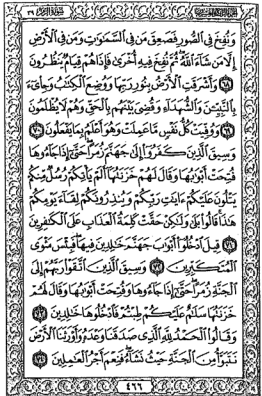 وَنُفِخَ فِي ٱلصُّورِ فَصَعِقَ مَن فِي ٱلسَّمَٰوَٰتِ وَمَن فِي ٱلْأَرْضِ
إِلَّا مَن شَآءَ ٱللَّهُ ثُمَّ نُفِخَ فِيهِ أُخْرَىٰ فَإِذَا هُمْ قِيَامٌ يَنظُرُونَ
٦٨ وَأَشْرَقَتِ ٱلْأَرْضُ بِنُورِ رَبِّهَا وَوُضِعَ ٱلْكِتَٰبُ وَجِا۟يٓءَ
بِٱلنَّبِيِّـۧنَ وَٱلشُّهَدَآءِ وَقُضِيَ بَيْنَهُم بِٱلْحَقِّ وَهُمْ لَا يُظْلَمُونَ
٦٩ وَوُفِّيَتْ كُلُّ نَفْسٍ مَّا عَمِلَتْ وَهُوَ أَعْلَمُ بِمَا يَفْعَلُونَ ٧٠
وَسِيقَ ٱلَّذِينَ كَفَرُوٓا۟ إِلَىٰ جَهَنَّمَ زُمَرًا حَتَّىٰٓ إِذَا جَآءُوهَا
فُتِحَتْ أَبْوَٰبُهَا وَقَالَ لَهُمْ خَزَنَتُهَآ أَلَمْ يَأْتِكُمْ رُسُلٌ مِّنكُمْ
يَتْلُونَ عَلَيْكُمْ ءَايَٰتِ رَبِّكُمْ وَيُنذِرُونَكُمْ لِقَآءَ يَوْمِكُمْ
هَٰذَا قَالُوا۟ بَلَىٰ وَلَٰكِنْ حَقَّتْ كَلِمَةُ ٱلْعَذَابِ عَلَى ٱلْكَٰفِرِينَ
٧١ قِيلَ ٱدْخُلُوٓا۟ أَبْوَٰبَ جَهَنَّمَ خَٰلِدِينَ فِيهَا فَبِئْسَ مَثْوَى
ٱلْمُتَكَبِّرِينَ ٧٢ وَسِيقَ ٱلَّذِينَ ٱتَّقَوْا۟ رَبَّهُمْ إِلَى
ٱلْجَنَّةِ زُمَرًا حَتَّىٰٓ إِذَا جَآءُوهَا وَفُتِحَتْ أَبْوَٰبُهَا وَقَالَ لَهُمْ
خَزَنَتُهَا سَلَٰمٌ عَلَيْكُمْ طِبْتُمْ فَٱدْخُلُوهَا خَٰلِدِينَ ٧٣
وَقَالُوا۟ ٱلْحَمْدُ لِلَّهِ ٱلَّذِي صَدَقَنَا وَعْدَهُۥ وَأَوْرَثَنَا ٱلْأَرْضَ
نَتَبَوَّأُ مِنَ ٱلْجَنَّةِ حَيْثُ نَشَآءُ فَنِعْمَ أَجْرُ ٱلْعَٰمِلِينَ ٧٤
٤٦٦